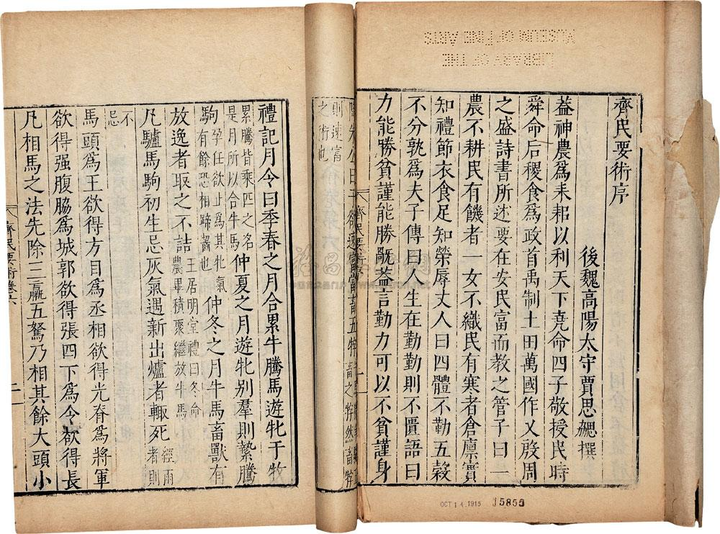 LIBRARY OF THE
MUSEUM OF FINE ARTS
齊民要術序
後魏高陽太守賈思勰撰
葢神農爲耒耜以利天下堯命四子敬授民時
舜命后稷食爲政首禹制土田萬國作乂殷周
之盛詩書所述要在安民富而教之管子曰一
農不耕民有饑者一女不織民有寒者倉廩實
知禮節衣食足知榮辱丈人曰四體不勤五穀
不分孰爲夫子傳曰人生在勤勤則不匱語曰
力能勝貧謹能勝禍葢言勤力可以不貧謹身
OCT 14 1915
15855
則速富
之術也
禮記月令曰季春之月合累牛騰馬遊牝于牧
累騰皆乘匹之名是月所以合牛馬仲夏之月遊牝别羣則縶騰
駒孕任欲止爲其牝氣有餘恐相蹄齧也仲冬之月牛馬畜獸有
放逸者取之不詰王居明堂禮曰冬命農畢積聚繼放牛馬
凡驢馬駒初生忌灰氣遇新出爐者輙死經雨者則
不忌
馬頭爲王欲得方目爲丞相欲得光脊爲將軍
欲得强腹脇爲城郭欲得張四下爲令欲得長
凡相馬之法先除三羸五駑乃相其餘大頭小
齊民要術卷六